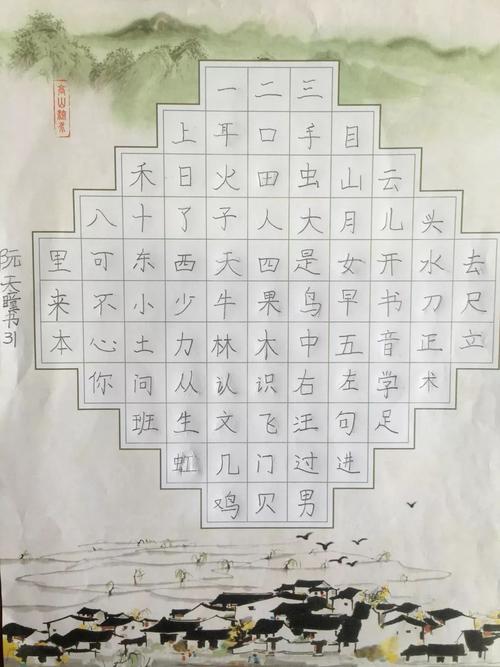 一二三
上耳口手目
禾日火田虫山云
八十了子人大月儿头
里可东西天四是女开水去
来不小少牛果鸟早书刀尺
本心土力林木中五音正立
你问从认识右左学术
班生文飞汪句足
虹几门过进
鸡贝男
阮天瞳书31